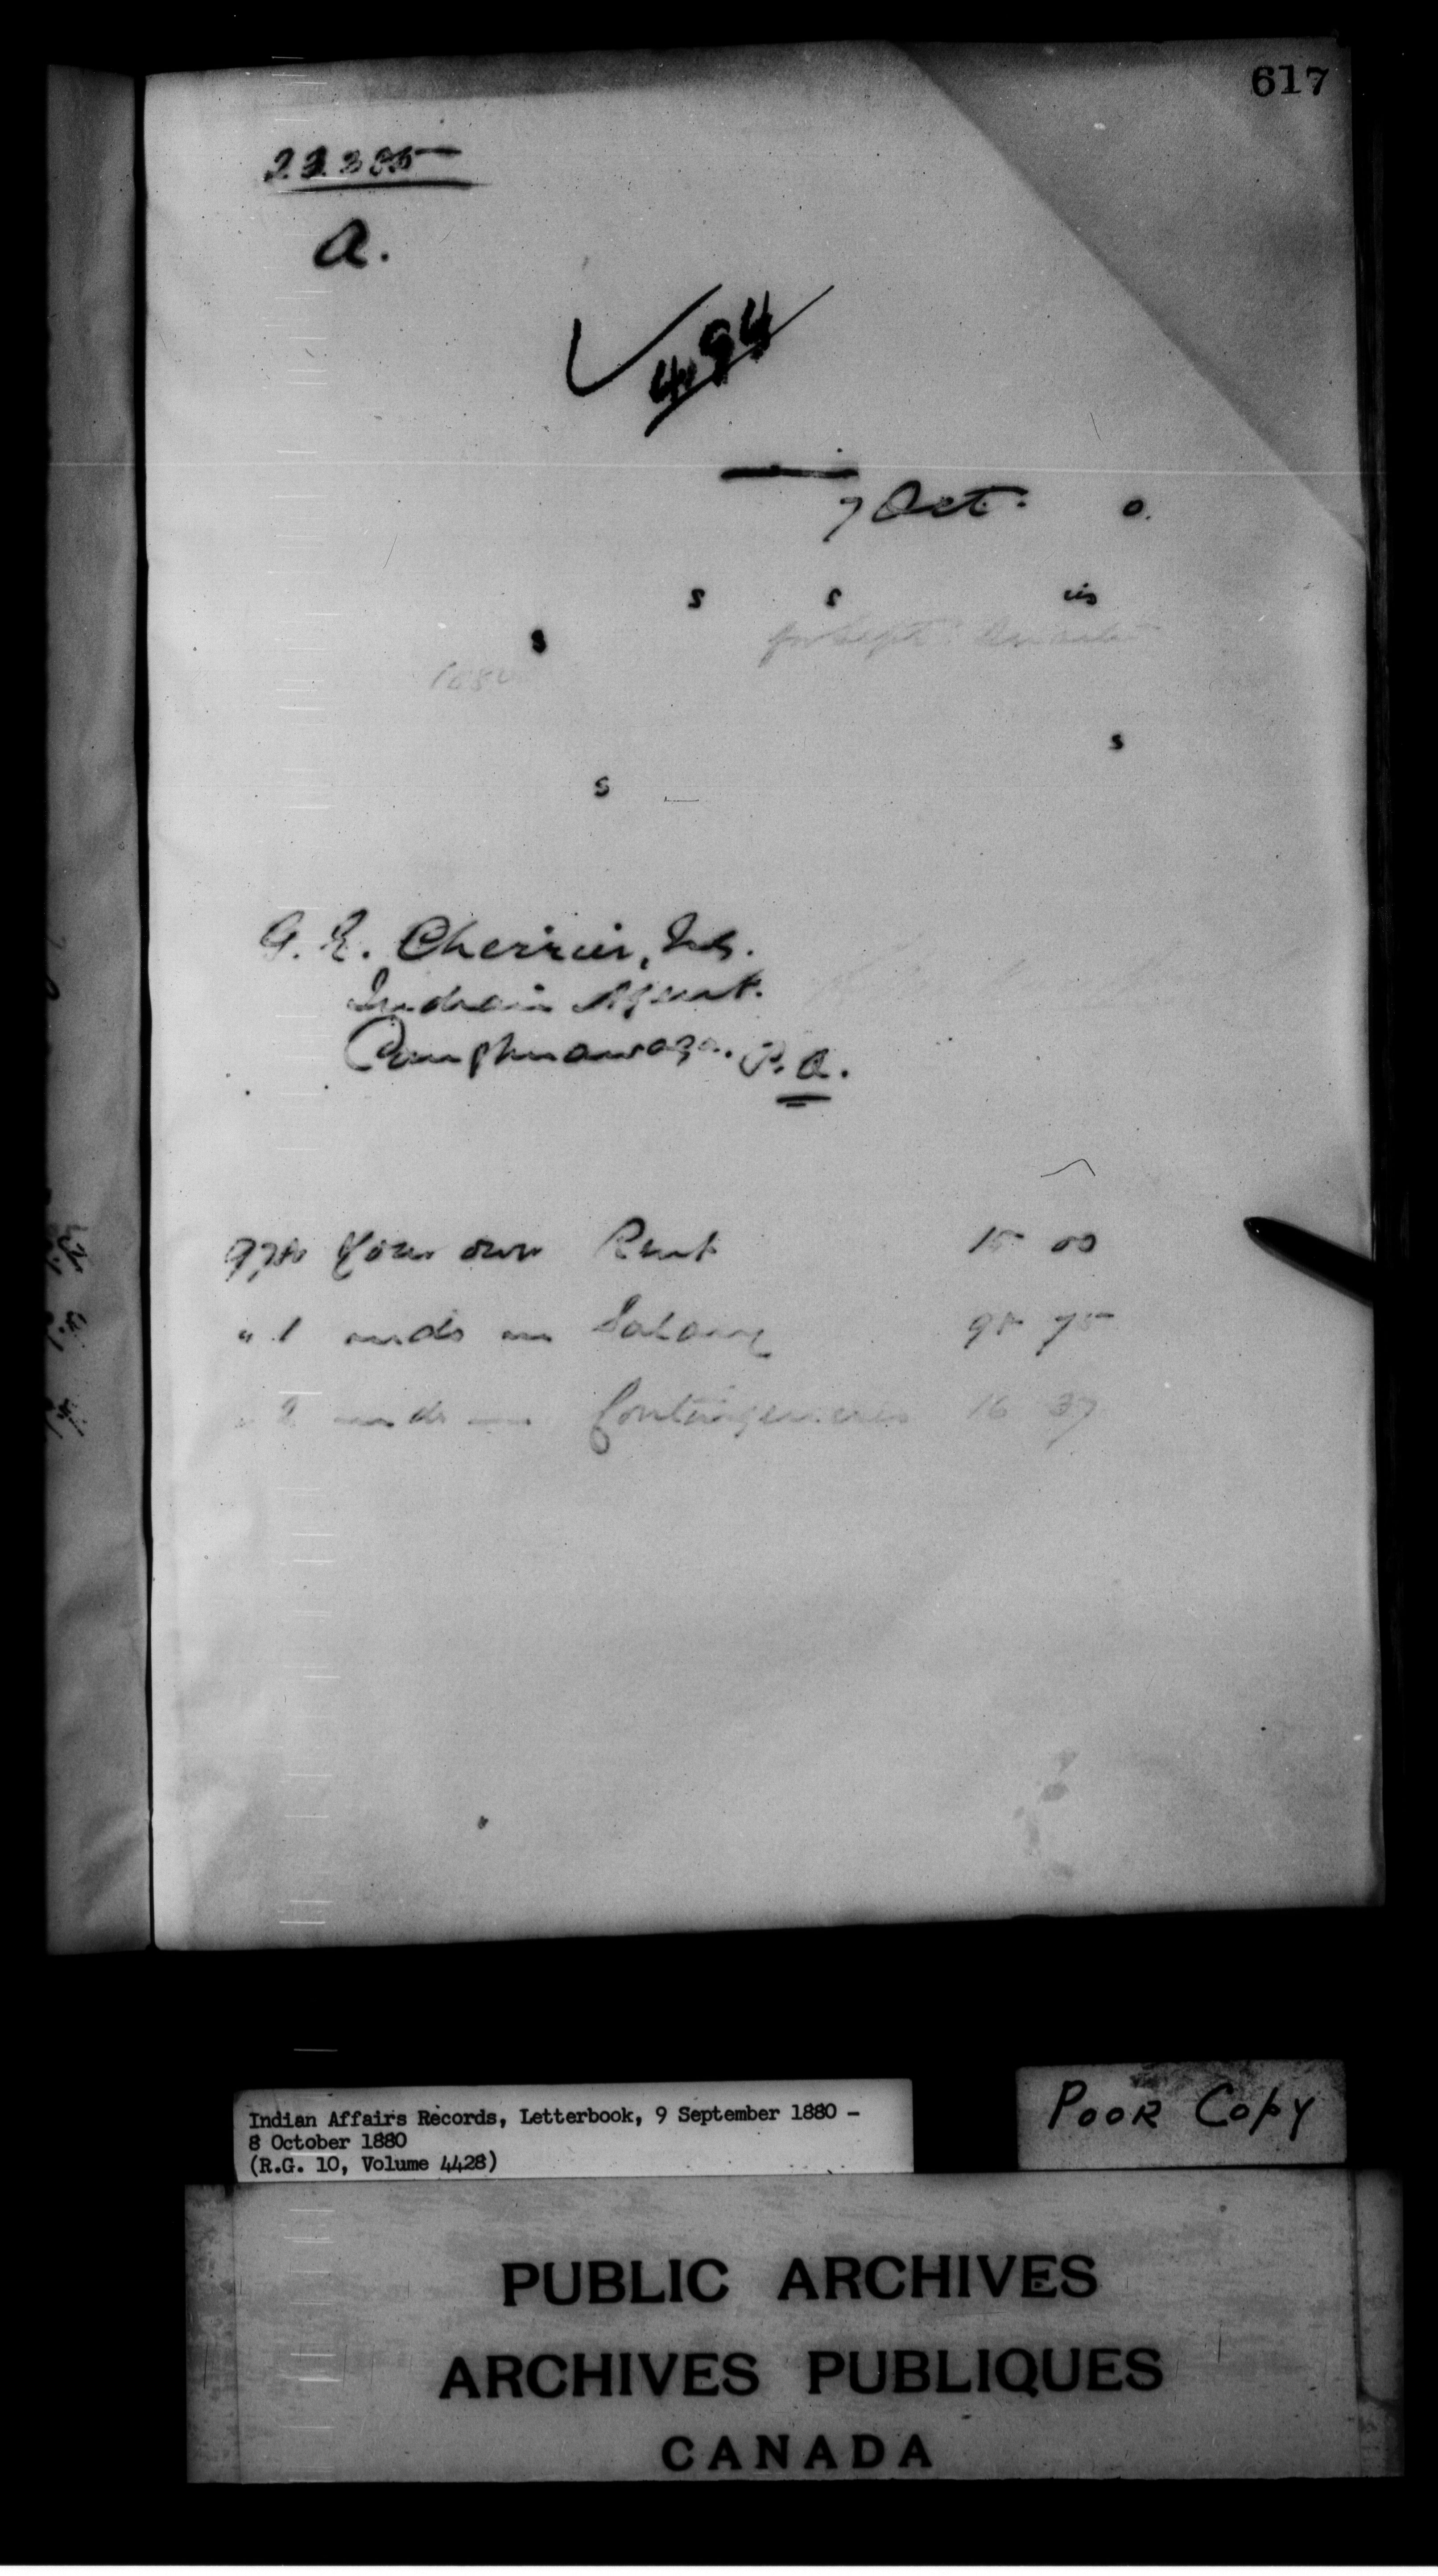 617
22385
A.
494
7 Oct. 0.
s s us
for Sept. Quarter
s
1880
s
s
G. E. Cherrier, Esq.
Indian Agent.
Caughnawaga. P. Q.
Your own Rent 15 00
" 1 Salary 98 75
" 2 Contingencies 16 37
Indian Affairs Records, Letterbook, 9 September 1880 -
8 October 1880
(R.G. 10, Volume 4428)
POOR COPY
PUBLIC ARCHIVES
ARCHIVES PUBLIQUES
CANADA